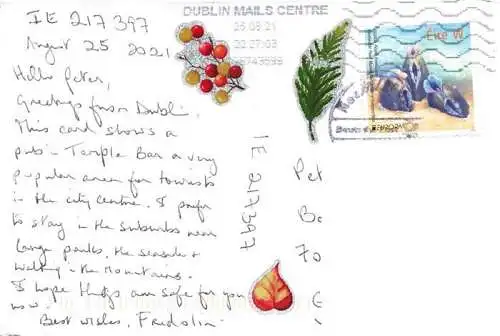 IE 217397
August 25 2021
Hello Peter,
Greetings from Dublin,
This card shows a
pub in Temple Bar a very
popular area for tourists
in the city centre. I prefer
to stay in the suburbs near
large parks, the seaside +
walking in the mountains.
I hope things are safe for you
now.
Best wishes, Fridolin
DUBLIN MAILS CENTRE
25.08.21
22:27:03
Éire W
IE 217397
Pet